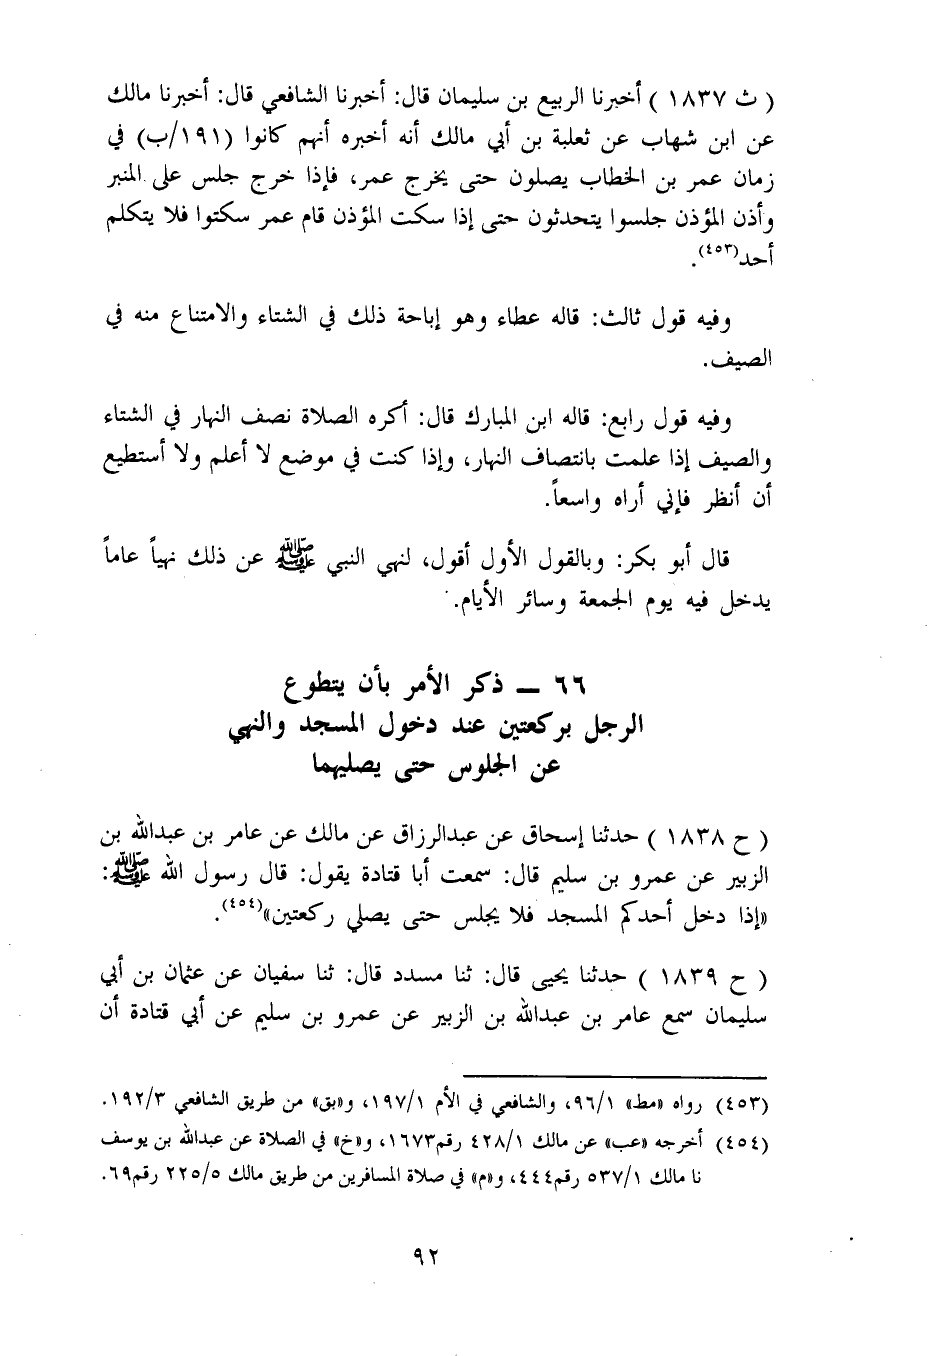 ( ث ١٨٣٧ ) أخبرنا الربيع بن سليمان قال: أخبرنا الشافعي قال: أخبرنا مالك
عن ابن شهاب عن ثعلبة بن أبي مالك أنه أخبره أنهم كانوا (١٩١/ب) في
زمان عمر بن الخطاب يصلون حتى يخرج عمر، فإذا خرج جلس على المنبر
وأذن المؤذن جلسوا يتحدثون حتى إذا سكت المؤذن قام عمر سكتوا فلا يتكلم
أحد(٤٥٣).
وفيه قول ثالث: قاله عطاء وهو إباحة ذلك في الشتاء والامتناع منه في
الصيف.
وفيه قول رابع: قاله ابن المبارك قال: أكره الصلاة نصف النهار في الشتاء
والصيف إذا علمت بانتصاف النهار، وإذا كنت في موضع لا أعلم ولا أستطيع
أن أنظر فإني أراه واسعاً.
قال أبو بكر: وبالقول الأول أقول، لنهي النبي ﷺ عن ذلك نهياً عاماً
يدخل فيه يوم الجمعة وسائر الأيام.
٦٦ ـ ذكر الأمر بأن يتطوع
الرجل بركعتين عند دخول المسجد والنهي
عن الجلوس حتى يصليهما
( ح ١٨٣٨ ) حدثنا إسحاق عن عبدالرزاق عن مالك عن عامر بن عبدالله بن
الزبير عن عمرو بن سليم قال: سمعت أبا قتادة يقول: قال رسول الله ﷺ:
«إذا دخل أحدكم المسجد فلا يجلس حتى يصلي ركعتين»(٤٥٤).
( ح ١٨٣٩ ) حدثنا يحيى قال: ثنا مسدد قال: ثنا سفيان عن عثمان بن أبي
سليمان سمع عامر بن عبدالله بن الزبير عن عمرو بن سليم عن أبي قتادة أن
(٤٥٣) رواه «مط» ٩٦/١، والشافعي في الأم ١٩٧/١، و«بق» من طريق الشافعي ١٩٢/٣.
(٤٥٤) أخرجه «عب» عن مالك ٤٢٨/١ رقم١٦٧٣، و«خ» في الصلاة عن عبدالله بن يوسف
نا مالك ٥٣٧/١ رقم٤٤٤، و«م» في صلاة المسافرين من طريق مالك ٢٢٥/٥ رقم٦٩.
٩٢